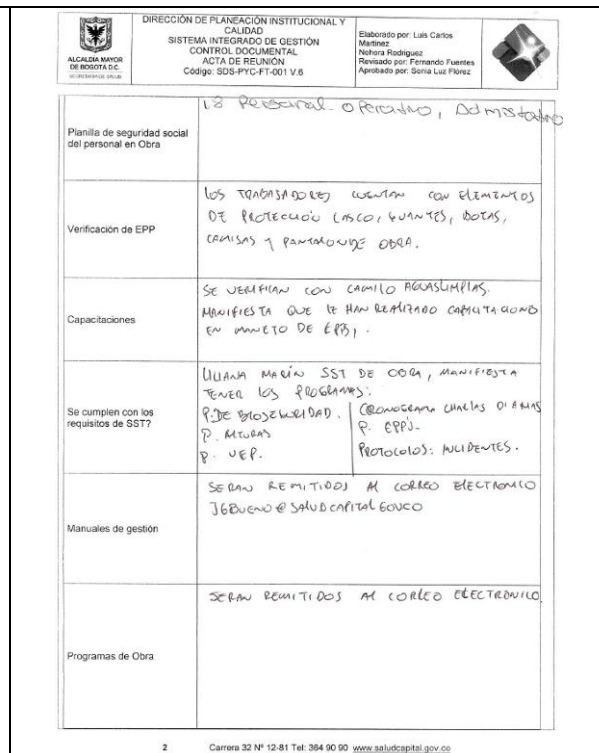 ALCALDÍA MAYOR
DE BOGOTÁ D.C.
SECRETARÍA DE SALUD
DIRECCIÓN DE PLANEACIÓN INSTITUCIONAL Y
CALIDAD
SISTEMA INTEGRADO DE GESTIÓN
CONTROL DOCUMENTAL
ACTA DE REUNIÓN
Código: SDS-PYC-FT-001 V.6
Elaborado por: Luis Carlos
Martinez
Nohora Rodriguez
Revisado por: Fernando Fuentes
Aprobado por: Sonia Luz Flórez
Planilla de seguridad social
del personal en Obra
18 Personal operativo,
Verificación de EPP
LOS TRABAJADORES CUENTAN CON ELEMENTOS
DE PROTECCIÓN CASCO, GUANTES, BOTAS,
CAMISAS Y PANTALON DE OBRA.
Capacitaciones
SE VERIFICAN CON CAMILO AGUASLIMPIAS.
MANIFIESTA QUE LE HAN REALIZADO CAPACITACIONES
EN MANEJO DE
Se cumplen con los
requisitos de SST?
LILIANA MARÍN SST DE OBRA, MANIFIESTA
TENER LOS PROGRAMAS:
P. DE BIOSEGURIDAD.
P. ALTURAS
P. VEP.
CRONOGRAMA CHARLAS DIARIAS
P. EPP'S.
PROTOCOLOS: INCIDENTES.
Manuales de gestión
SERAN REMITIDOS AL CORREO ELECTRONICO
JGBUENO@SALUDCAPITAL GOV.CO
Programas de Obra
SERAN REMITIDOS AL CORREO ELECTRONICO.
2 Carrera 32 Nº 12-81 Tel: 364 90 90 www.saludcapital.gov.co